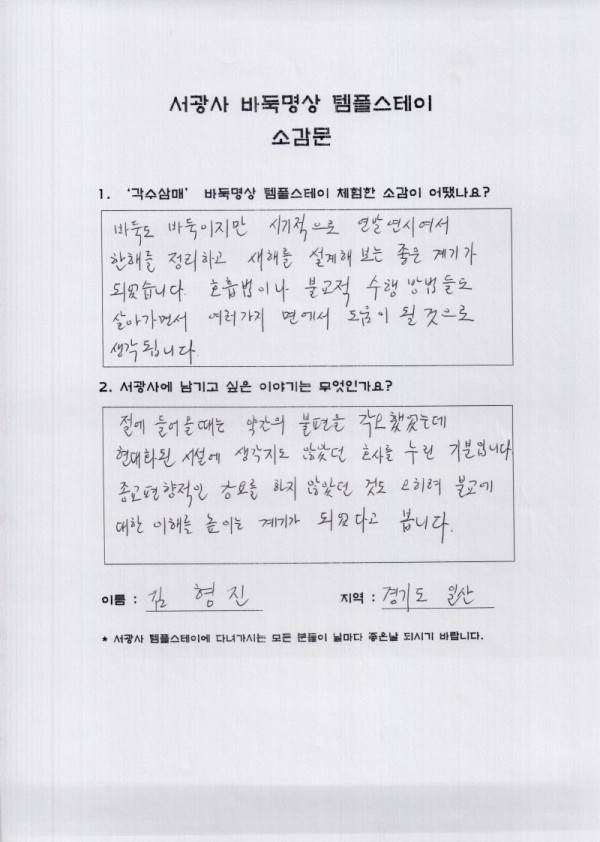 서광사 바둑명상 템플스테이
소감문
1. '각수삼매' 바둑명상 템플스테이 체험한 소감이 어땠나요?
바둑도 바둑이지만 시기적으로 연말연시여서
한해를 정리하고 새해를 설계해 보는 좋은 계기가
되었습니다. 호흡법이나 불교적 수행 방법들도
살아가면서 여러가지 면에서 도움이 될 것으로
생각됩니다.
2. 서광사에 남기고 싶은 이야기는 무엇인가요?
절에 들어올때는 약간의 불편을 각오했었는데
현대화된 시설에 생각지도 않았던 호사를 누린 기분입니다
종교편향적인 강요를 하지 않았던 것도 오히려 불교에
대한 이해를 높이는 계기가 되었다고 봅니다.
이름 : 김 형 진 지역 : 경기도 일산
* 서광사 템플스테이에 다녀가시는 모든 분들이 날마다 좋은날 되시기 바랍니다.